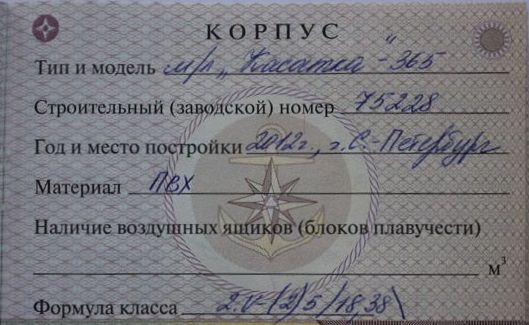 КОРПУС
Тип и модель м/л „Касатка"-365
Строительный (заводской) номер 75228
Год и место постройки 2012г., г. С.-Петербург
Материал ПВХ
Наличие воздушных ящиков (блоков плавучести)
м³
Формула класса 2.V-(2)5/18,38\